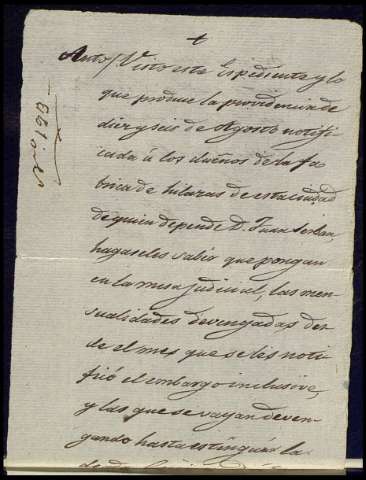 +
Auto/ Visto este Espediente y lo
que produce la providencia de
diez y seis de Agosto notifi
cada á los dueños de la fa
brica de hilazas de esta ciudad
de quien depende D. Juan
hagaseles saber que pongan
en la mesa judicial, las men-
sualidades devengadas des-
de el mes que se les noti-
ficó el embargo inclusive,
y las que se vayan deven-
gando hasta estinguir la